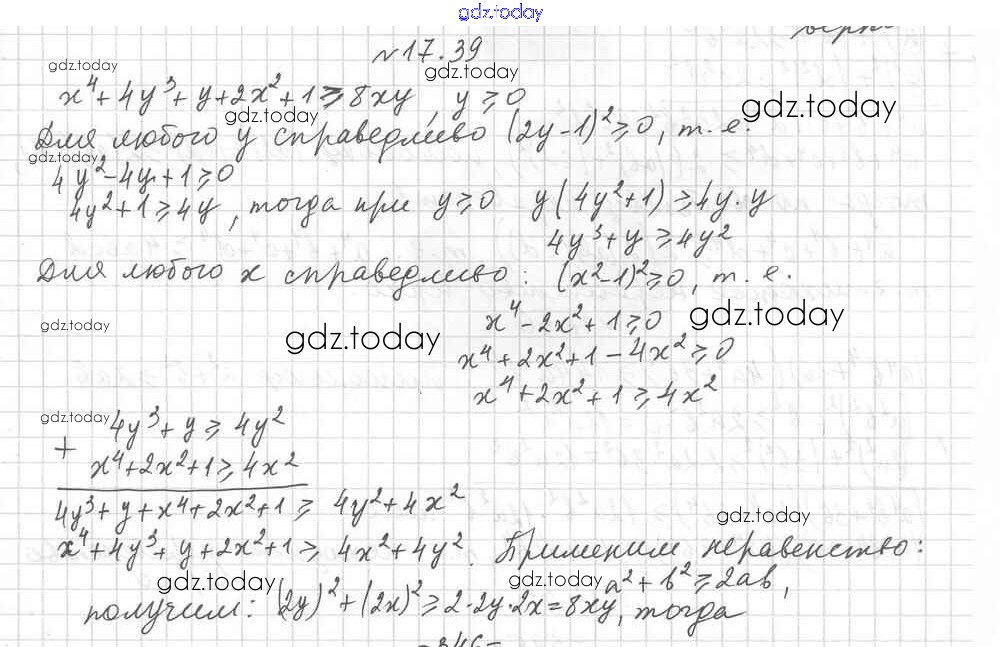 gdz.today
№17.39
gdz.today
gdz.today
x⁴+4y³+y+2x²+1≥8xy, y≥0
gdz.today
gdz.today
Для любого y справедливо (2y-1)²≥0, т.е.
gdz.today
4y²-4y+1≥0
4y²+1≥4y, тогда при y≥0 y(4y²+1)≥4y·y
4y³+y≥4y²
Для любого x справедливо: (x²-1)²≥0, т.е.
gdz.today
gdz.today
gdz.today
x⁴-2x²+1≥0
x⁴+2x²+1-4x²≥0
x⁴+2x²+1≥4x²
gdz.today
4y³+y≥4y²
+
x⁴+2x²+1≥4x²
4y³+y+x⁴+2x²+1≥4y²+4x²
gdz.today
x⁴+4y³+y+2x²+1≥4x²+4y². Применим неравенство:
gdz.today
gdz.today
a²+b²≥2ab,
получим: (2y)²+(2x)²≥2·2y·2x=8xy, тогда